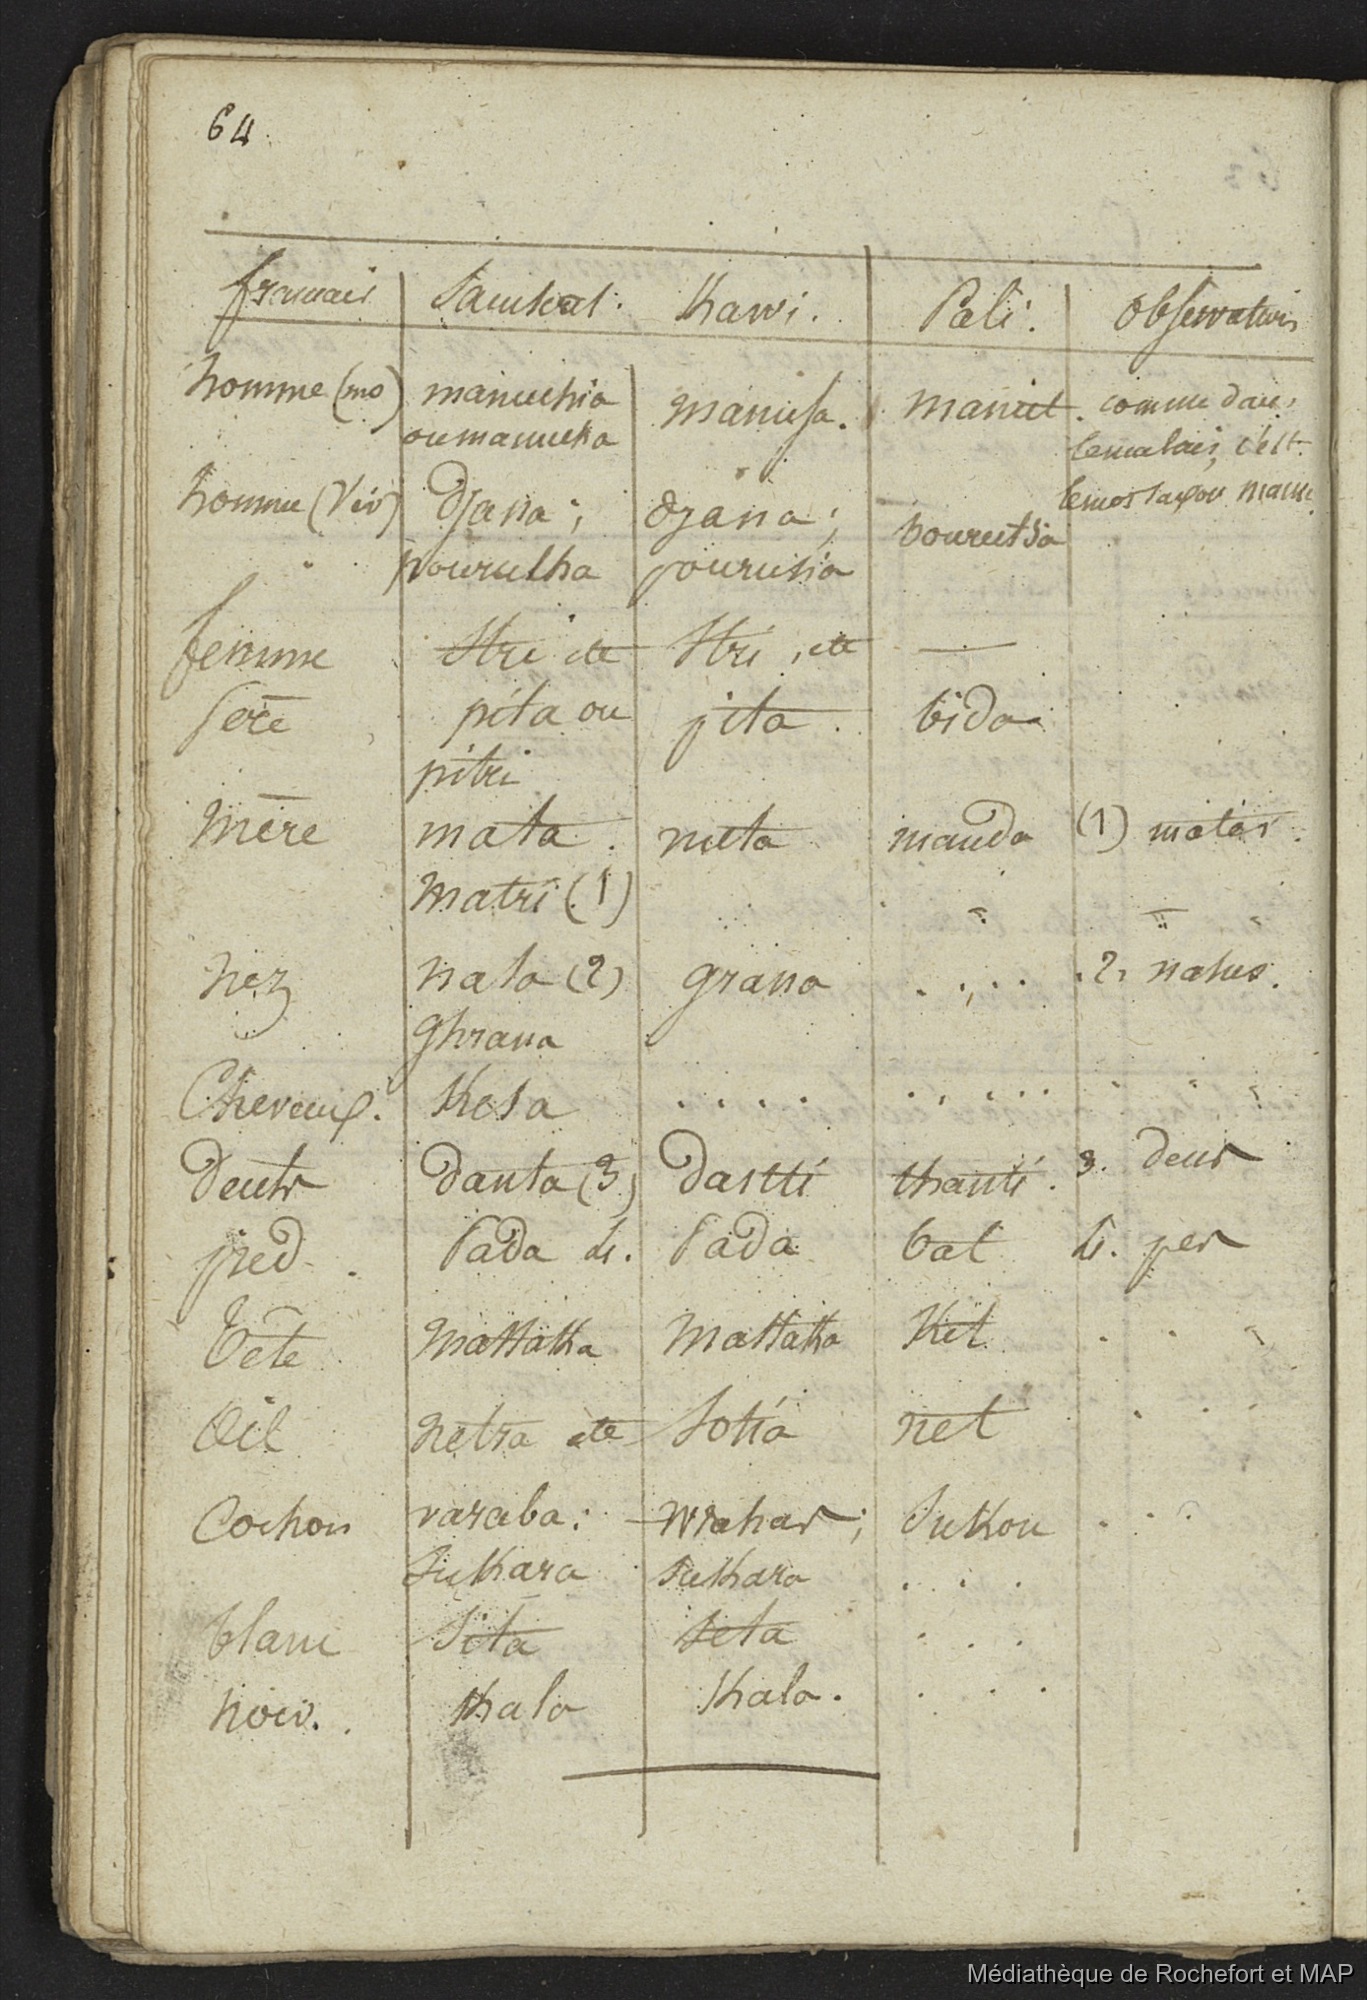 64
français Sanskrat. Kawi. Pali. observations
homme (mo) manuchia manusa. manut. comme dans
ou manucka le malais, c'est
homme (Vir) Djana; djana; le mot
pourutha pourusia bourutsa
femme Stri etc Stri, etc —
père pita ou pita. bida
pitri
mère mata. meta manda (1) mater.
Matri (1)
nez nasa (2) grana .... 2. nasus.
Ghrana
Cheveux. Kesa .... .....
Dents Danta (3) Dantti thanti. 3. dens
pied. Pada 4. Pada bat 4. pes
Tete Mastaka Mastaka Ket . . .
Oeil Netra etc Sotia net . . .
Cochon varaba: wrahas; Sukou . . .
Sukara sukara . . .
blanc Sita seta . . .
noir. Kala Kala. . . .
Médiathèque de Rochefort et MAP